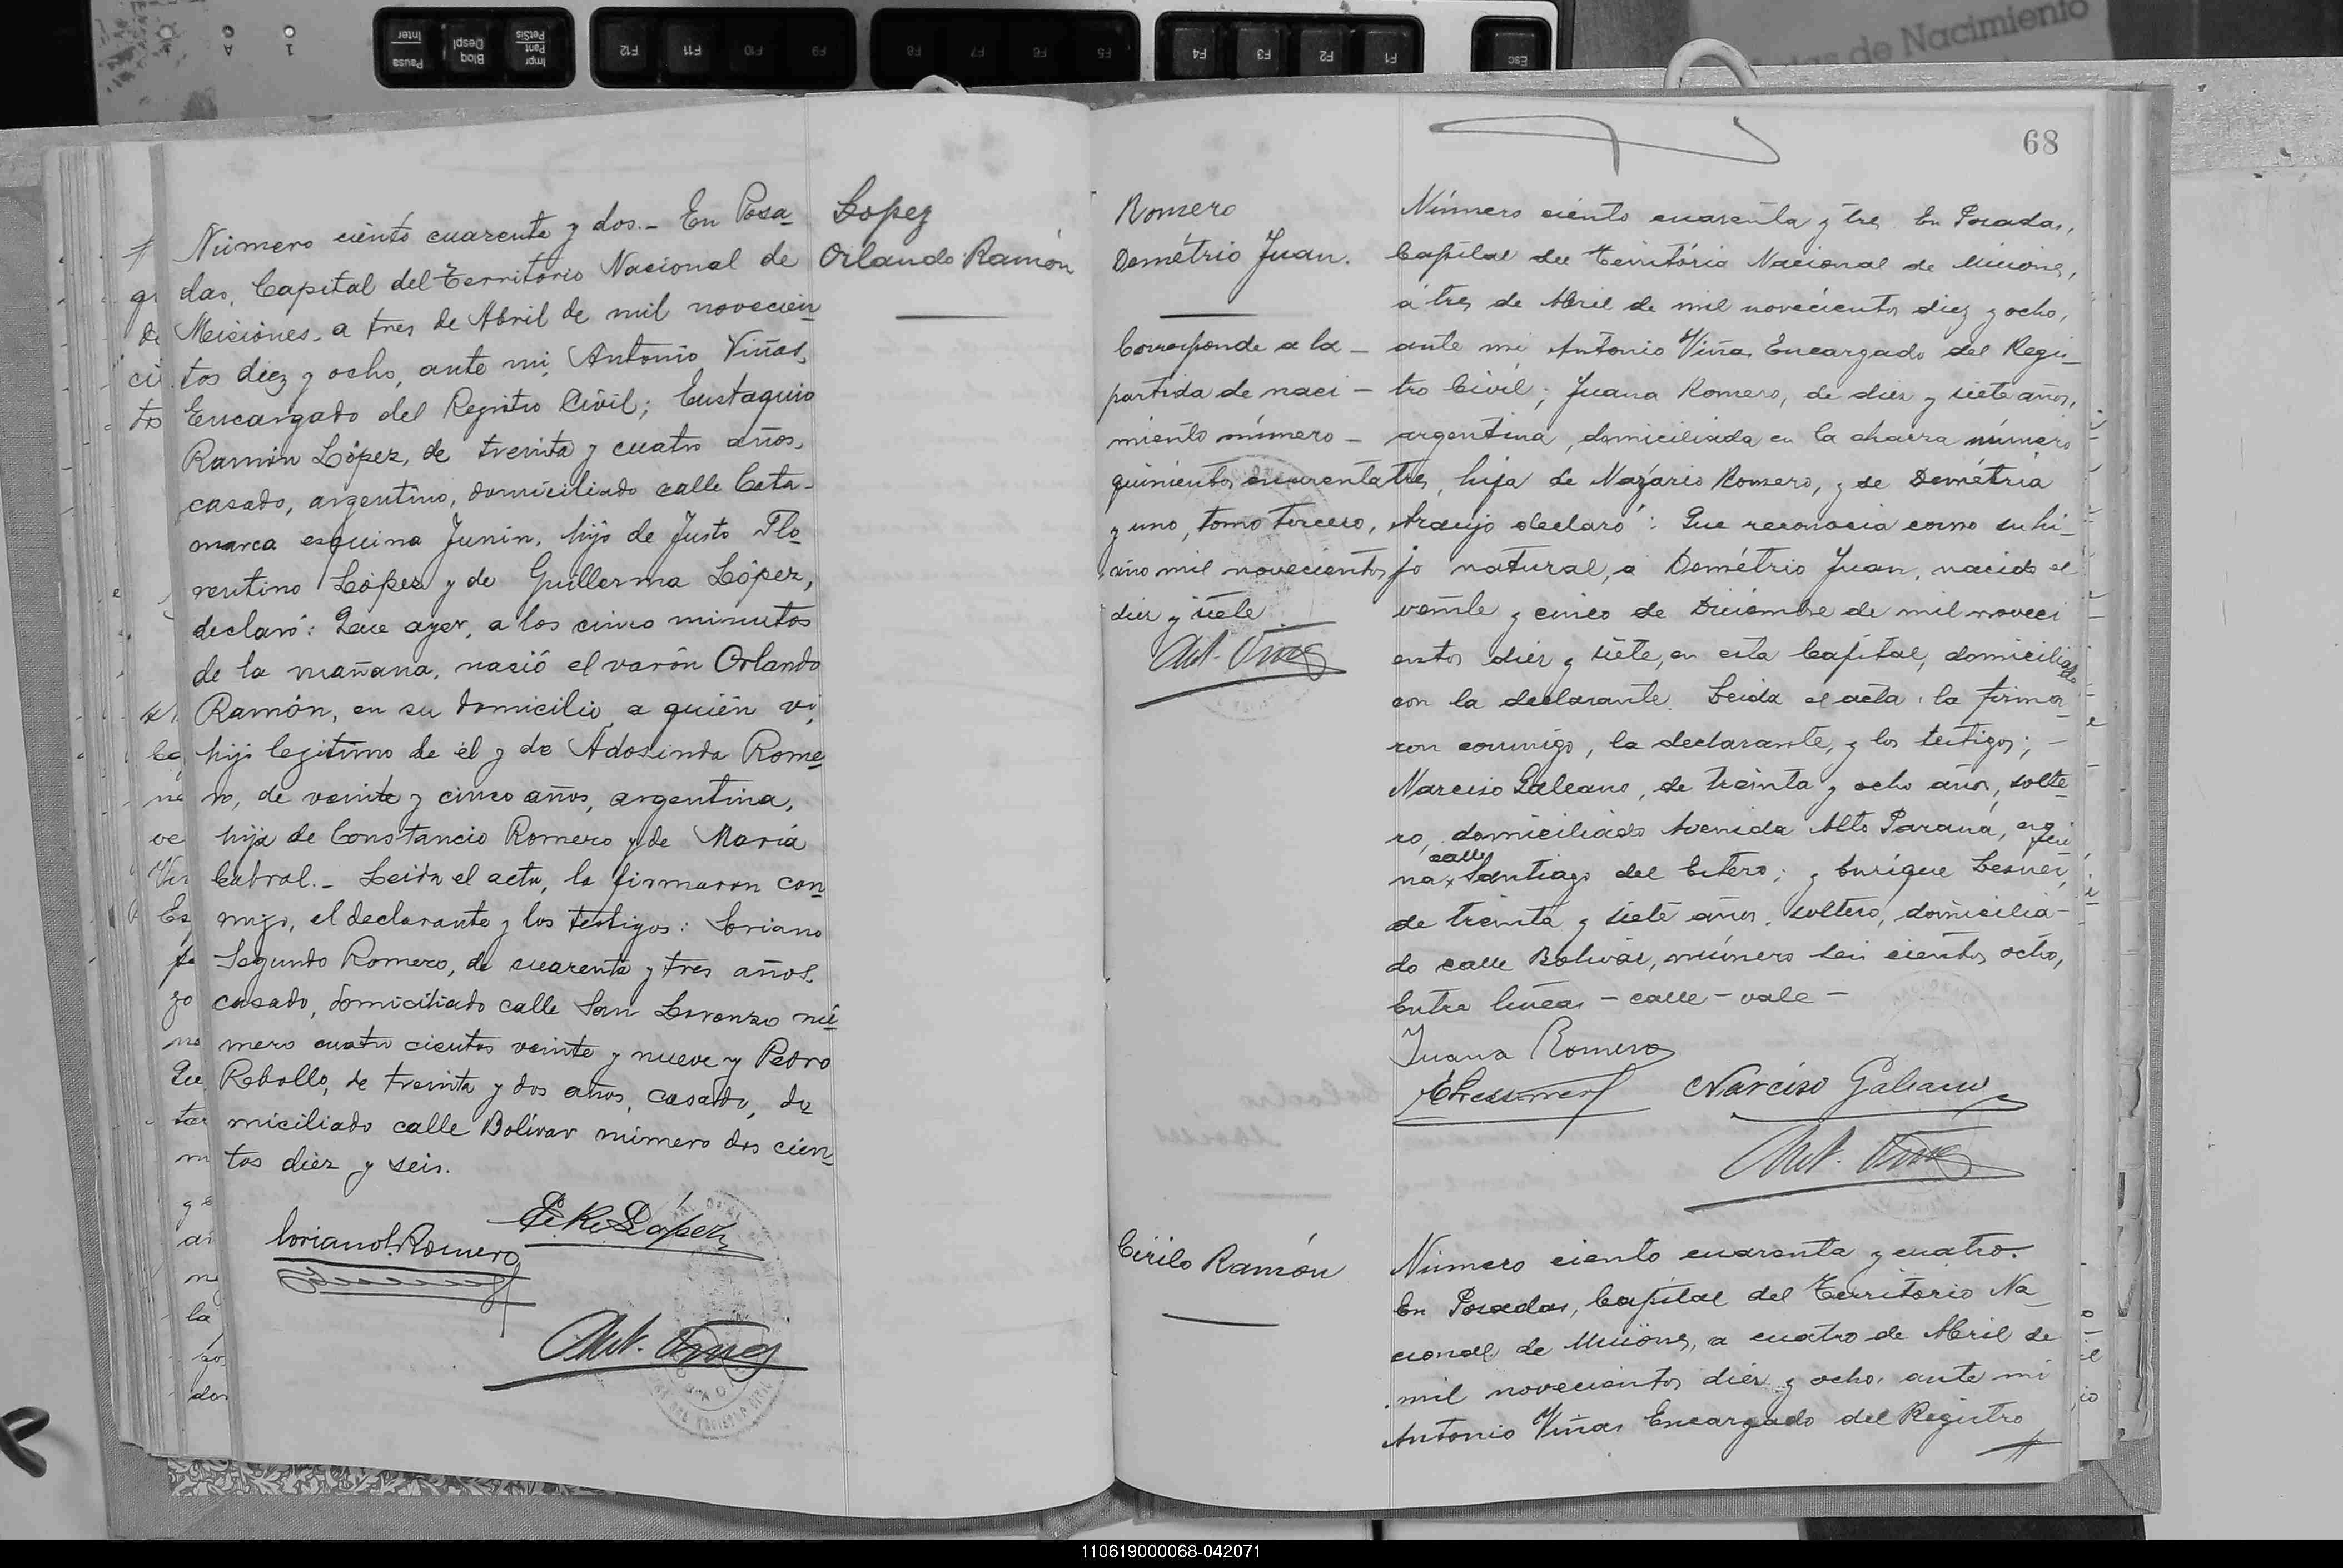 Número ciento cuarenta y dos.- En Posa-
das, Capital del Territorio Nacional de
Misiones, a tres de Abril de mil novecien-
tos diez y ocho, ante mi, Antonio Viñas,
Encargado del Registro Civil; Eustaquio
Ramón López, de treinta y cuatro años,
casado, argentino, domiciliado calle Cata-
marca esquina Junín, hijo de Justo Flo-
rentino López y de Guillerma López,
declaró: Que ayer, a los cinco minutos
de la mañana, nació el varón Orlando
Ramón, en su domicilio, a quién vi,
hijo legítimo de él y de Adosinda Rome-
ro, de veinte y cinco años, argentina,
hija de Constancio Romero y de María
Cabral.- Leida el acta, la firmaron con-
migo, el declarante y los testigos: Loriano
Segundo Romero, de cuarenta y tres años,
casado, domiciliado calle San Lorenzo nú-
mero cuatro cientos veinte y nueve y Pedro
Rebollo, de treinta y dos años, casado, do-
miciliado calle Bolívar número dos cien-
tos diez y seis.
E. R. López
Loriano S. Romero
Ant. Viñas
Lopez
Orlando Ramón
68
Romero
Demétrio Juan.
Corresponde a la -
partida de naci -
miento número -
quinientos cuarenta
y uno, tomo tercero,
año mil novecientos
diez y siete
Ant. Viñas
Número ciento cuarenta y tres. En Posadas,
Capital del Território Nacional de Misiones,
a tres de Abril de mil novecientos diez y ocho,
ante mi Antonio Viñas Encargado del Regis-
tro Civil; Juana Romero, de diez y siete años,
argentina, domiciliada en la chacra número
tres, hija de Nazário Romero, y de Demétria
Araujo declaró: Que reconocia como su hi-
jo natural, a Demétrio Juan, nacido el
veinte y cinco de Diciembre de mil noveci
entos diez y siete, en esta Capital, domiciliado
con la declarante. Leida el acta, la firma-
ron conmigo, la declarante, y los testigos; -
Narciso Galeano, de treinta y ocho años, solte-
ro, domiciliado Avenida Alto Paraná, esqui
na calle Santiago del Estero; y Enrique
de treinta y siete años, soltero, domicilia-
do calle Bolívar, número seis cientos ocho,
Entre líneas - calle - vale -
Juana Romero
Narciso Galeano
Ant. Viñas
Cirilo Ramón
Número ciento cuarenta y cuatro.
En Posadas, Capital del Territorio Na-
cional de Misiones, a cuatro de Abril de
mil novecientos diez y ocho, ante mi
Antonio Viñas Encargado del Registro
110619000068-042071